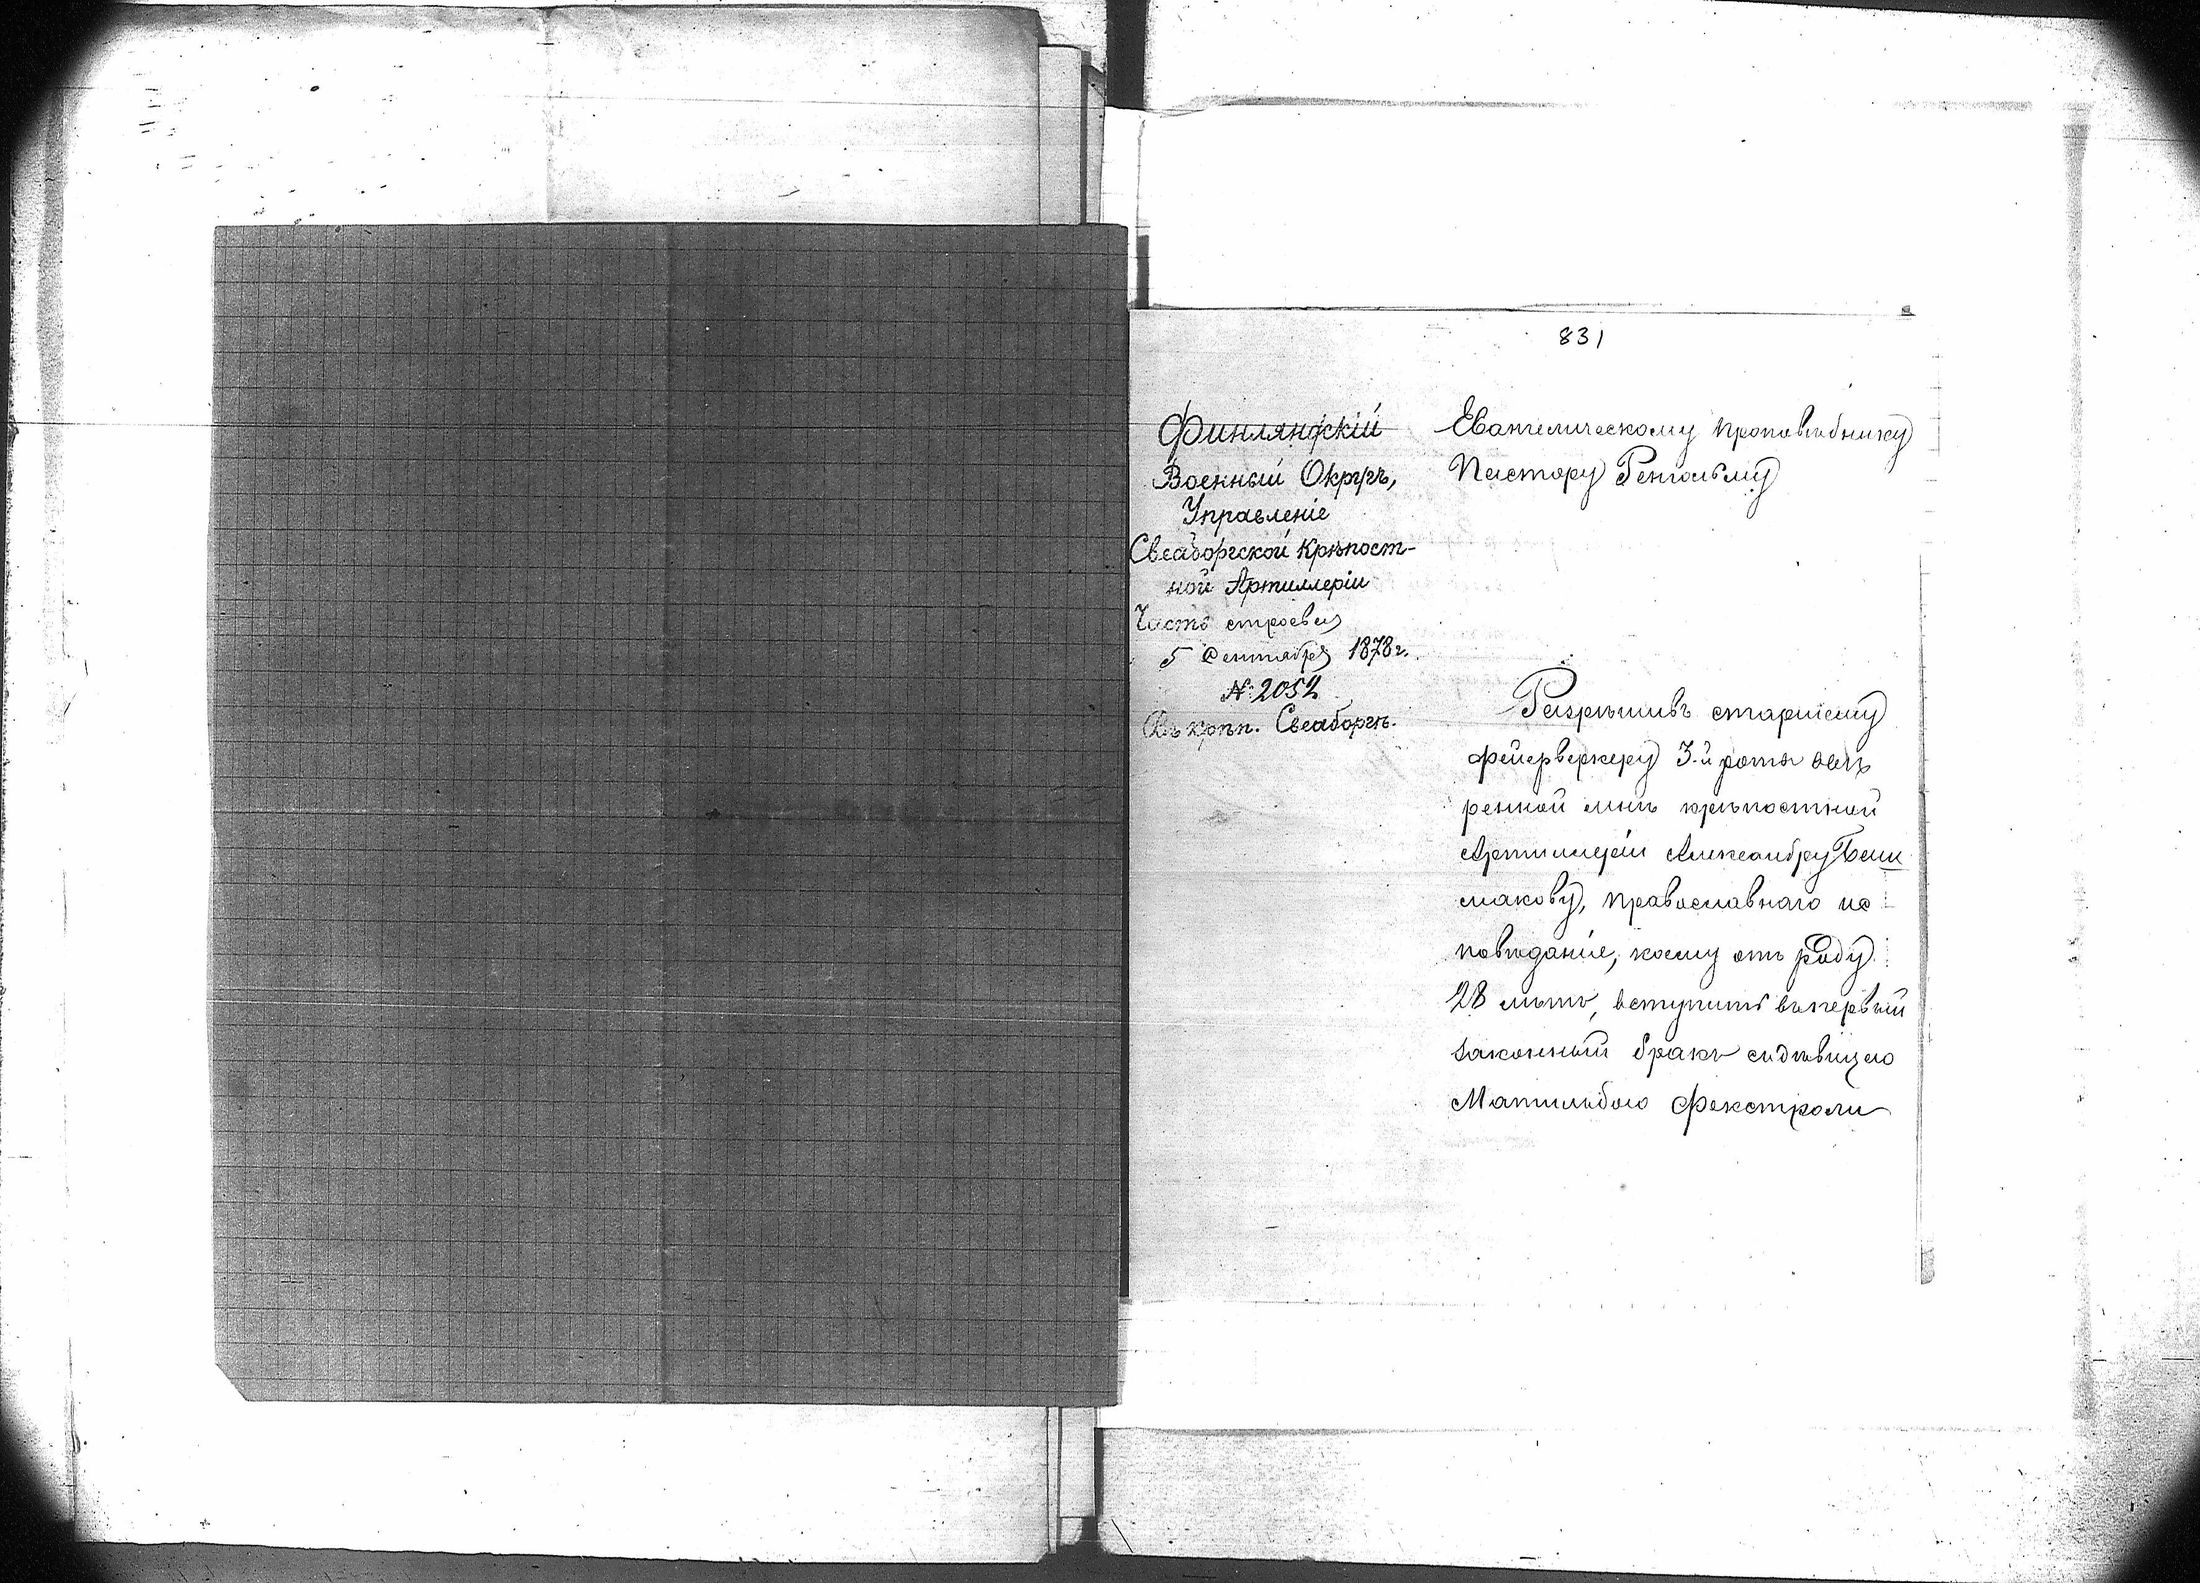 831
Финляндскій
Военный Округъ,
Управленіе
Свеаборгской Крѣпост-
ной Артиллеріи
Часть строевая
5 Сентября 1878 г.
№ 2052
Въ крѣп. Свеаборгѣ.
Евангелическому проповѣднику
Пастору Ренгольму
Разрѣшивъ старшему
фейерверкеру 3-й роты ввѣ
ренной мнѣ крѣпостной
Артиллеріи Александру Баш
макову, православнаго ис
повѣданія, коему отъ роду
28 лѣтъ, вступить въ первый
законный бракъ съ дѣвицею
Матильдою Фокстроли